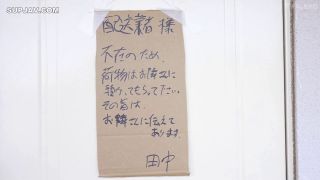 SUPJAV.COM
配送業者 様
不在のため、
荷物はお隣さんに
預かってもらって下さい。
その旨は、
お隣さんに伝えて
あります。
田中